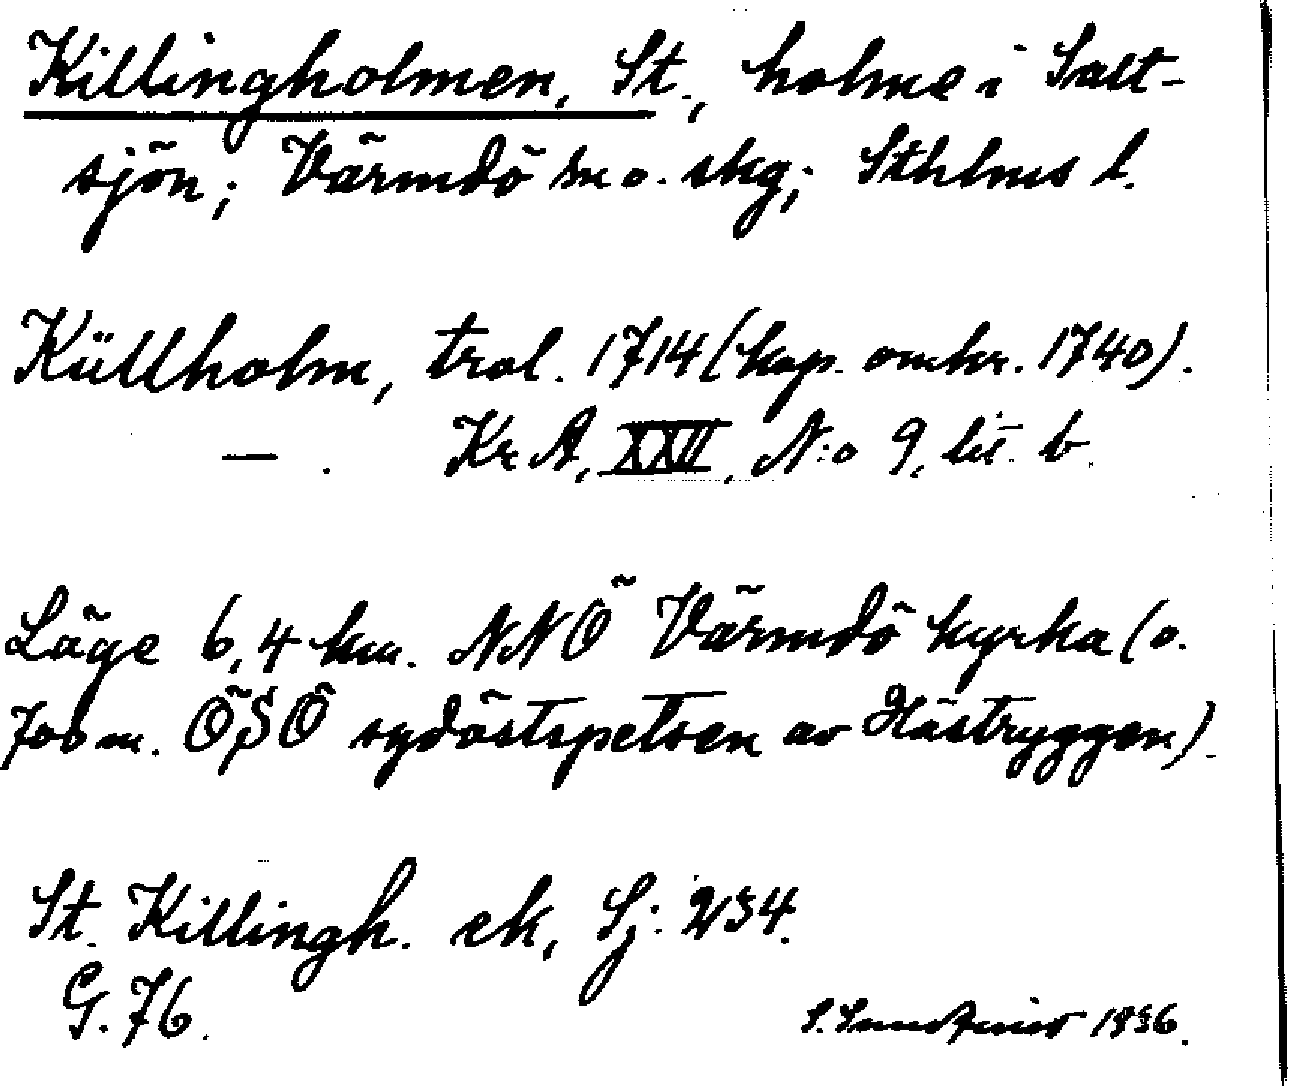 Killingholmen, St., holme i Salt-
sjön; Värmdö sn o. skg; Sthlms l.
Küllholm, trol. 1714 (kop. omkr. 1740).
— . Kr A, XXII, N:o 9, lit. b.
Läge 6,4 km. NNÖ Värmdö kyrka (o.
700 m. ÖSÖ sydöstspetsen av Hästryggen).
St. Killingh. ek, Sj: 234.
G. 76.
S. 1936.